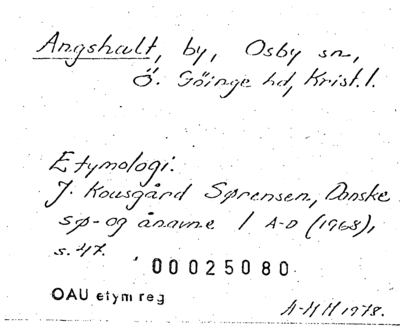 Angshult, by, Osby sn,
Ö. Göinge hd, Krist. l.
Etymologi.
J. Kousgård Sørensen, Danske
sø- og ånavne 1 A-D (1968),
s. 47.
00025080
OAU etym reg
A-H H 1978.